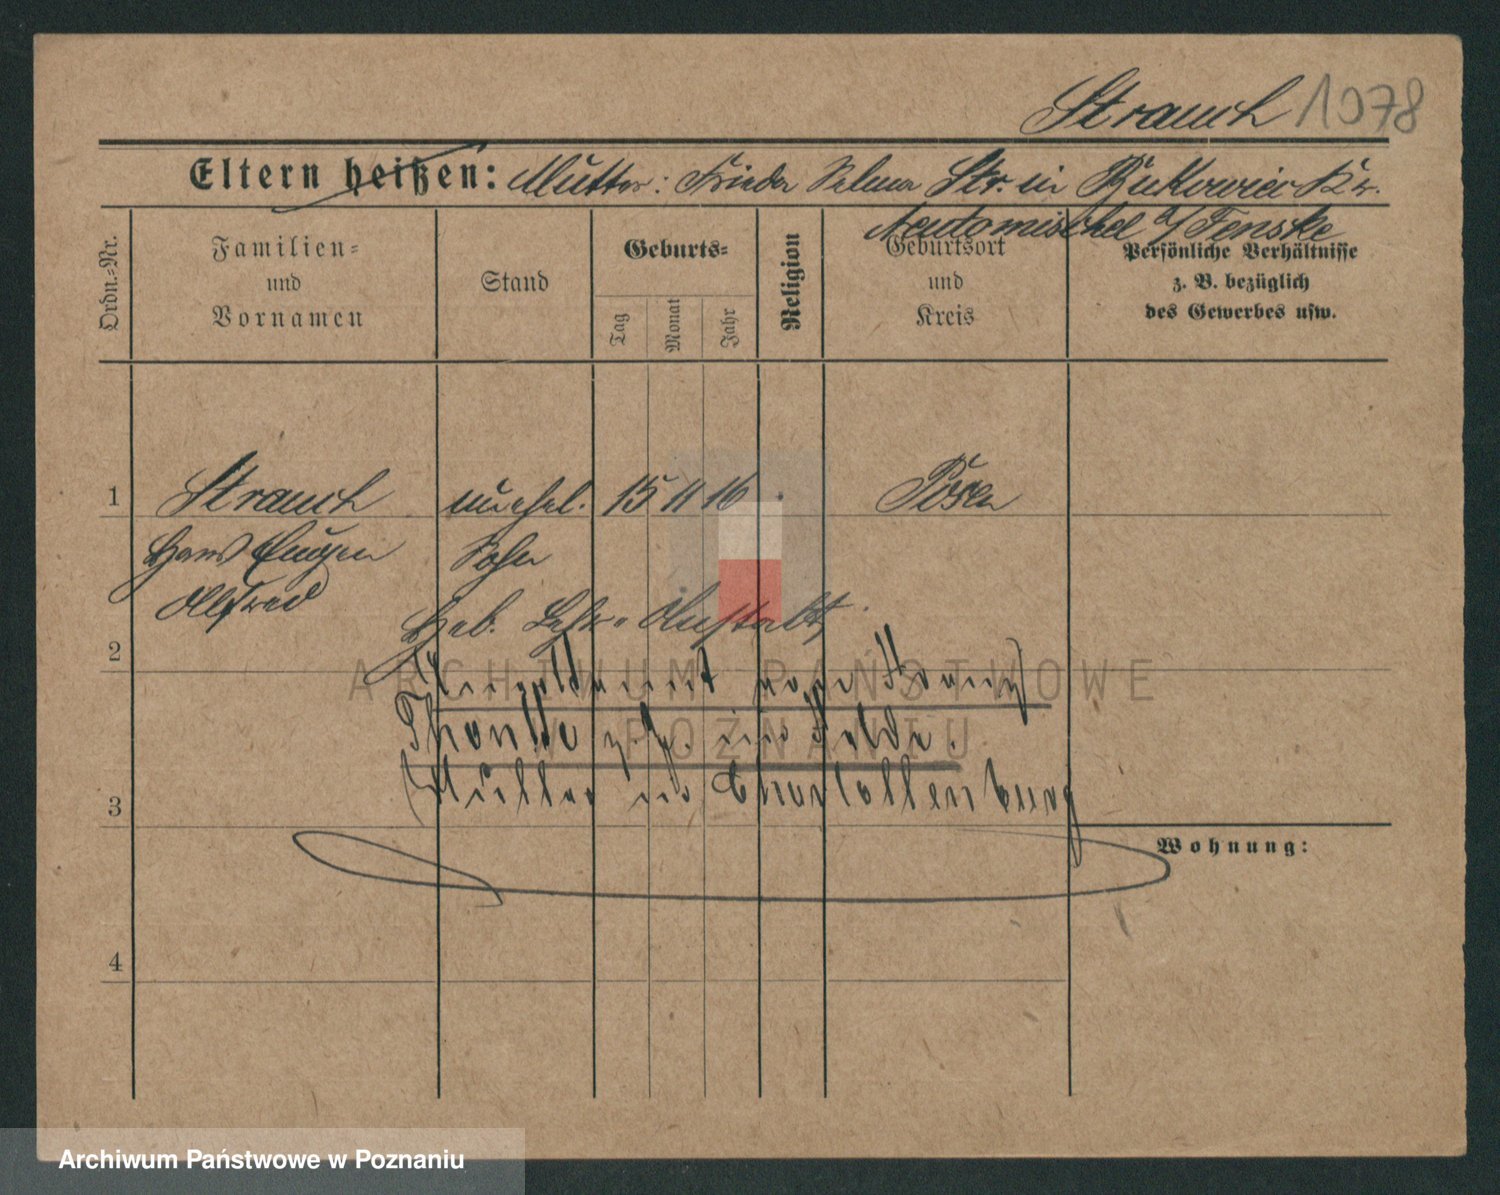 Strauch 1078
Eltern heißen: Mutter: Frieda Selma Str. in Bukowiec Kr.
Neutomischel b/ Fenske
Ordn.-Nr.
Familien-
und
Vornamen
Stand
Geburts-
Tag
Monat
Jahr
Religion
Geburtsort
und
Kreis
Persönliche Verhältnisse
z. B. bezüglich
des Gewerbes usw.
1 Strauch unehel. 15 11 16 Posen
Hans Eugen Sohn
Alfred
Heb. Lehr-Anstalt
2
ARCHIWUM PAŃSTWOWE
W POZNANIU
im Felde.
3 Müller in Charlottenburg
Wohnung:
4
Archiwum Państwowe w Poznaniu